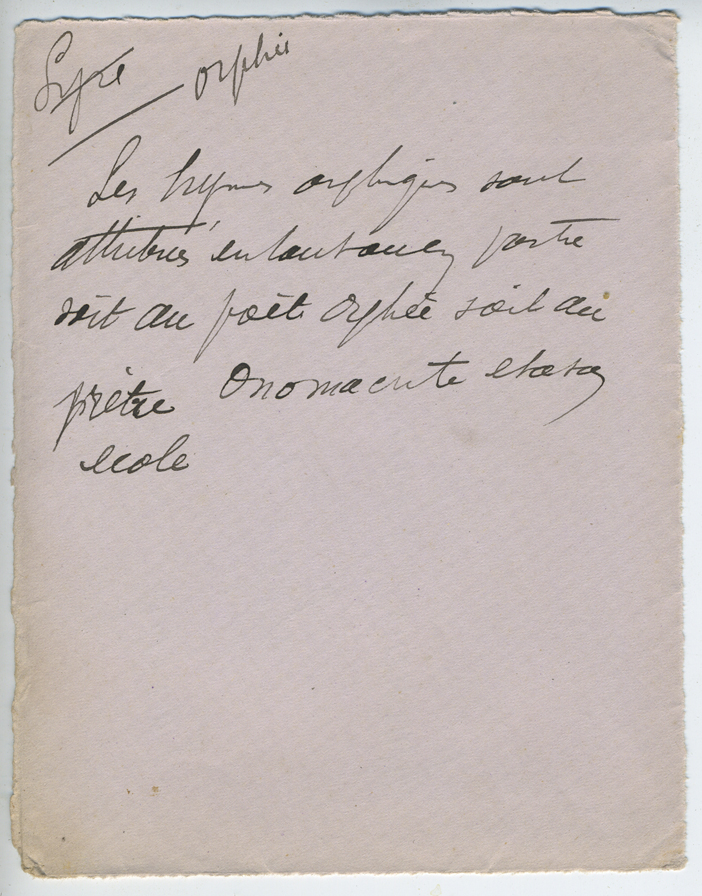 Lyre orphée
Les hymnes orphiques sont
attribués en tout ou en partie
soit au poète Orphée soit au
prêtre Onomacrite et à sa
école